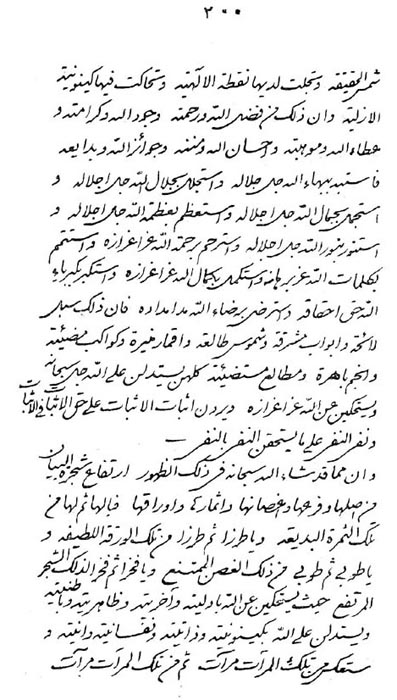 ٢٠٠
شمس الحقیقه و تجلت لدیها نقطة الالهیه و تحاکت فیها کینونیته
الازلیة و ان ذلک من فضل الله و رحمته و جود الله و کرامته و
عطاء الله و موهبته و احسان الله و مننه و جوائز الله و بدایعه
فاستبه ببهاء الله جل جلاله و استجلل بجلال الله جل اجلاله و
استجمل بجمال الله جل اجلاله و استعظم بعظمة الله جل اجلاله و
استنور بنور الله جل اجلاله و استرحم برحمة الله عز اعزازه و استتمم
بکلمات الله عز برهانه و استکمل بکمال الله عز اعزازه و استکبر بکبریاء
الله حق احقاقه و استرضی برضاء الله مد امداده فان ذلک سبل
لائحة و ابواب مشرقه و شموس طالعه و اقمار منیرة و کواکب مضیئة
و انجم باهرة و مطالع مستضیئة کلهن یستدللن علی الله جل سبحانه
و یستحکین عن الله عز اعزازه و یردن اثبات الاثبات علی حق الاثبات فی الاثبات
و نفی النفی علی ما یستحقن النفی بالنفی
و ان مما قد شاء الله سبحانه فی ذلک الظهور ارتفاع شجرة البیان
من اصلها و فرعها و اغصانها و اثمارها و اوراقها فیالها ثم لها من
تلک الثمرة البدیعه و یا طرزا ثم طرزا من تلک الورقة اللطیفه و
یا طوبی ثم طوبی من ذلک الغصن الممتنع و یا فخرا ثم فخرا لذلک الشجر
المرتفع حیث یستحکین عن الله باولیته و آخریته و ظاهریته و باطنیته
و یستدللن علی الله بکینونیته و ذاتیته و نفسانیته و انیته و
ستعکس من تلک المرآت مرآت ثم من تلک المرآت مرآت